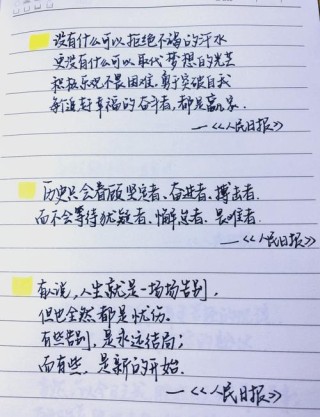 没有什么可以拒绝不渴的汗水
更没有什么可以取代梦想的光芒
积极乐观不畏困难,勇于突破自我
每个追封幸福的奋斗者,都是赢家.
—《人民日报》
历史只会眷顾坚定者、奋进者、搏击者.
而不会等待犹疑者、懈怠者、畏难者.
—《人民日报》
有人说,人生就是一场场告别,
但也全然都是忧伤.
有些告别,是永远结局;
而有些,是新的开始.
—《人民日报》